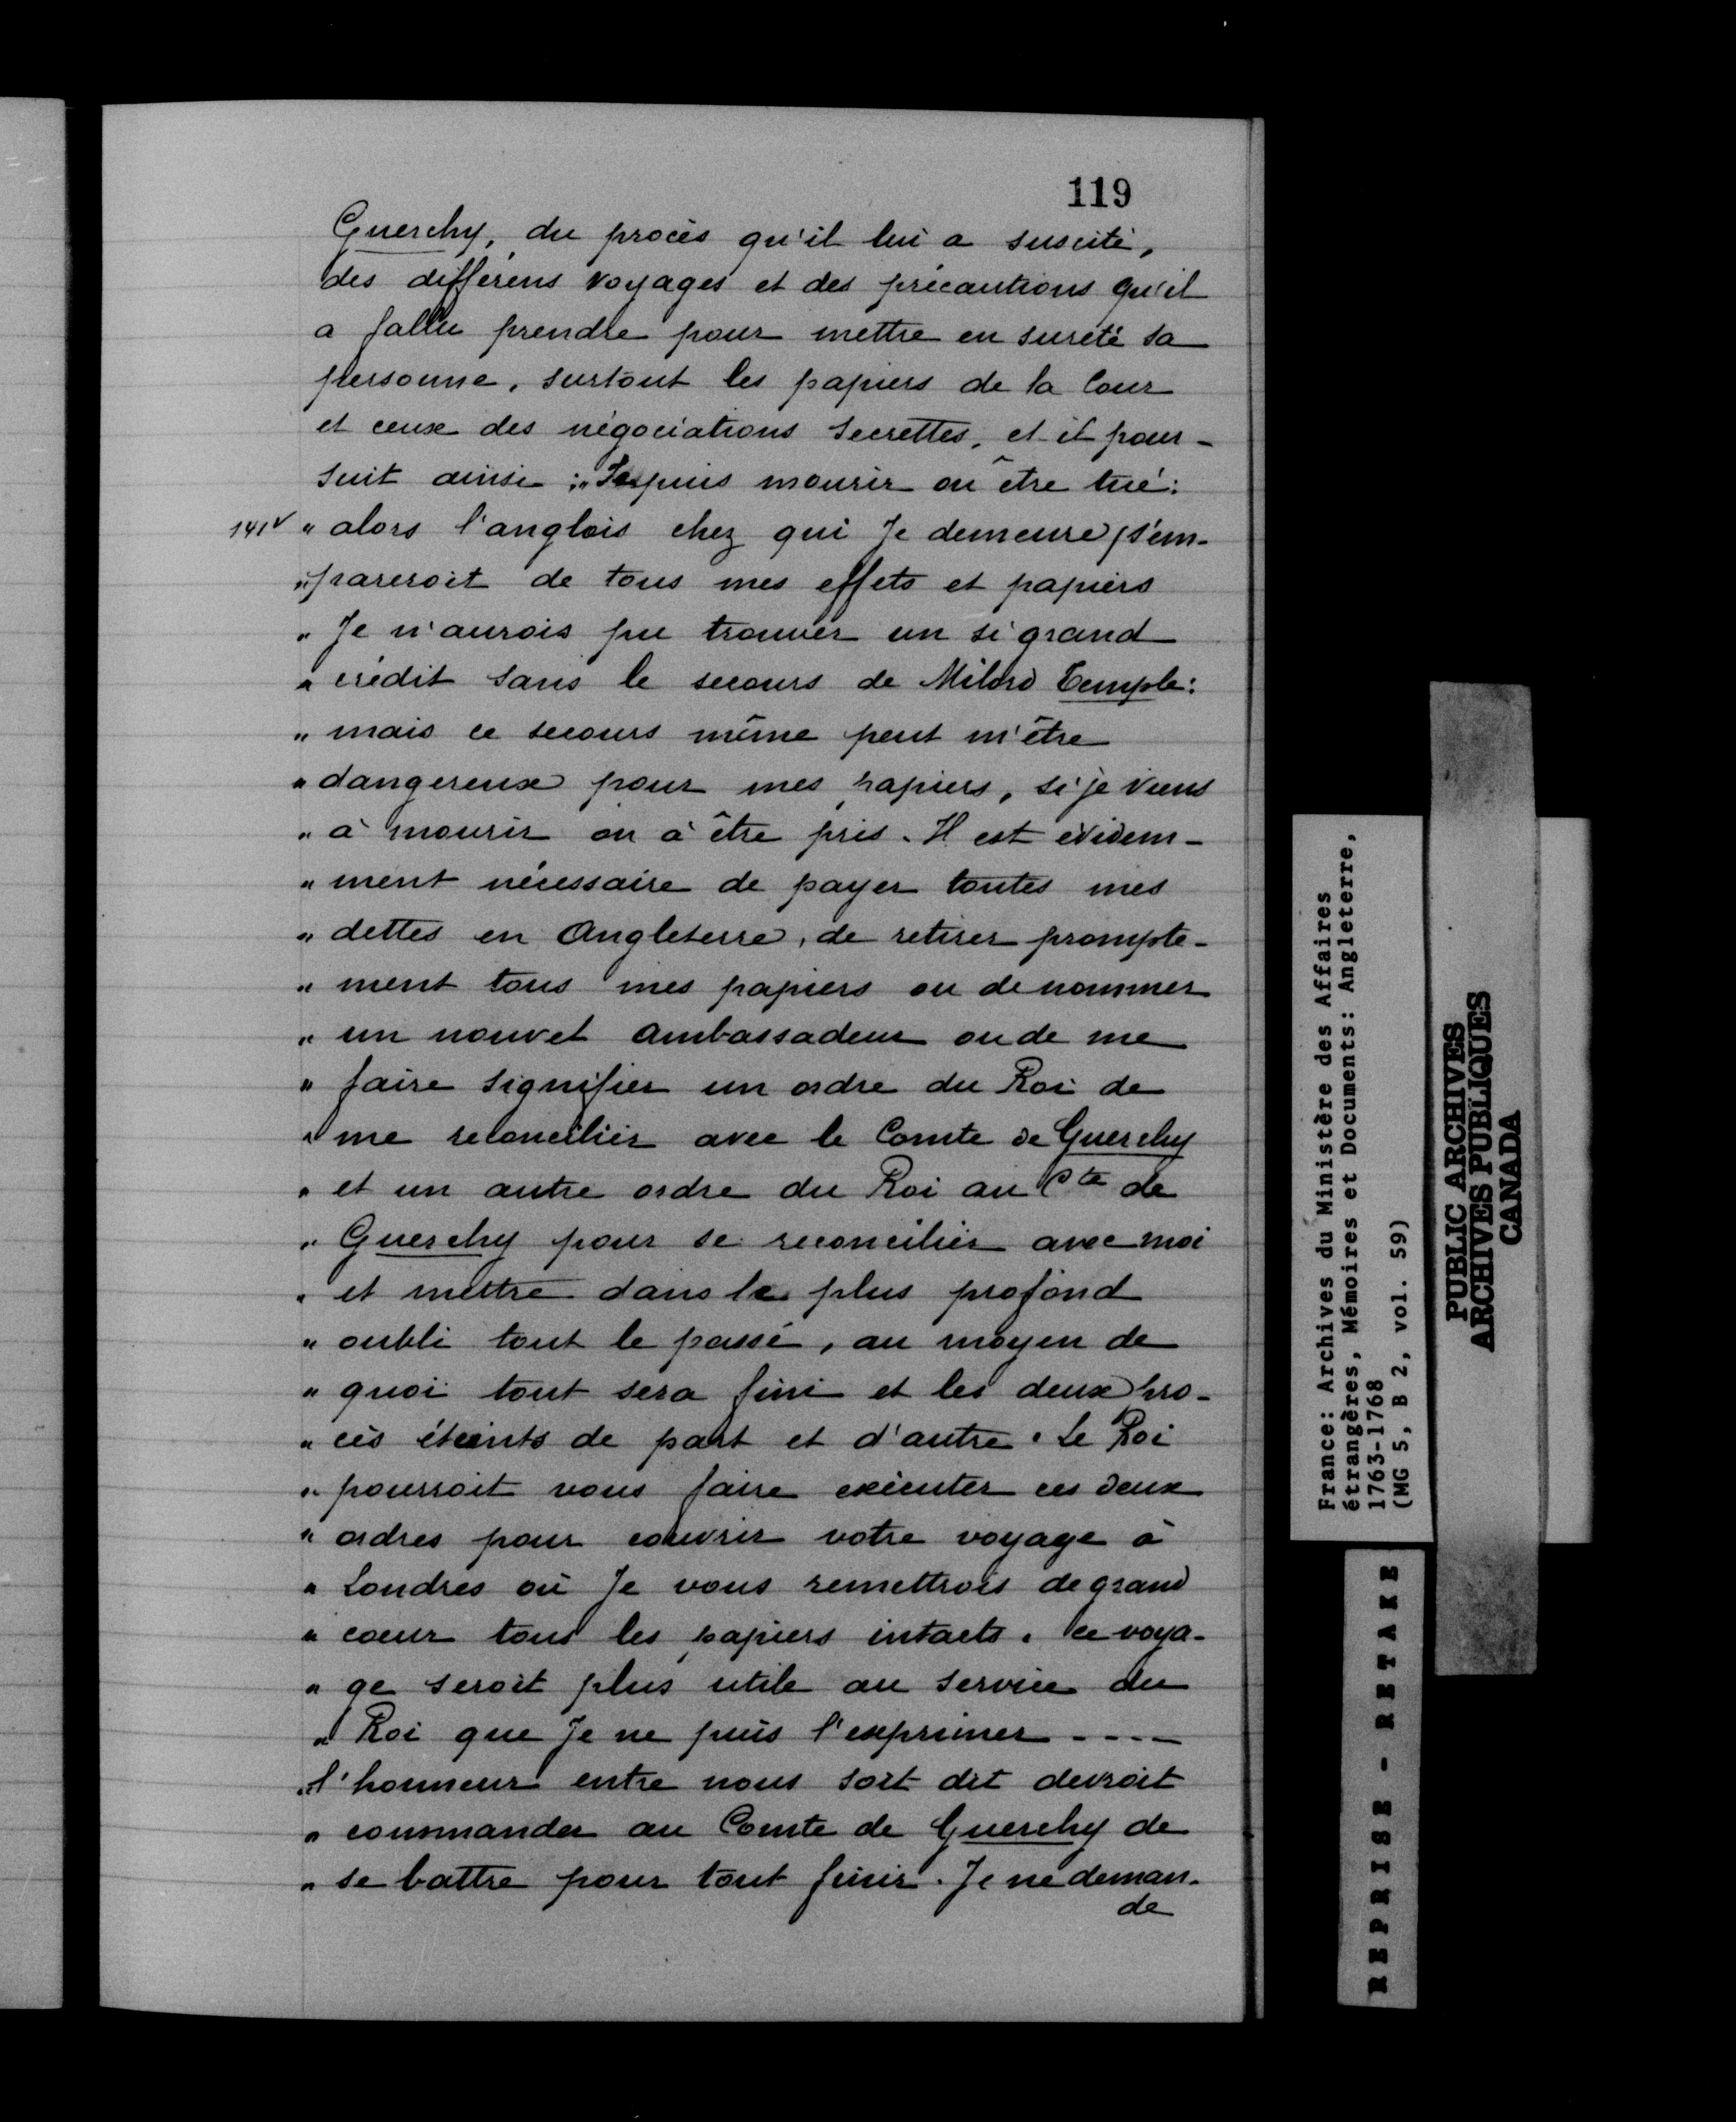 119
Guerchy, du procès qu'il lui a suscité,
des différens voyages et des précautions qu'il
a fallu prendre pour mettre en sureté sa
personne, surtout les papiers de la Cour
et ceux des négociations secrettes, et il pour-
suit ainsi : " Je puis mourir ou être tué :
141v " alors l'anglois chez qui Je demeure s'em-
" pareroit de tous mes effets et papiers
" Je n'aurois pu trouver un si grand
" crédit sans le secours de Milord Temple :
" mais ce secours même peut m'être
" dangereux pour mes papiers, si je viens
" à mourir ou à être pris. Il est évidem-
" ment nécessaire de payer toutes mes
" dettes en Angleterre, de retirer prompte-
" ment tous mes papiers ou de nommer
" un nouvel ambassadeur ou de me
" faire signifier un ordre du Roi de
" me reconcilier avec le Comte de Guerchy
" et un autre ordre du Roi au Cte de
" Guerchy pour se reconcilier avec moi
" et mettre dans le plus profond
" oubli tout le passé, au moyen de
" quoi tout sera fini et les deux pro-
" cès éteints de part et d'autre. Le Roi
" pourroit vous faire exécuter ces deux
" ordres pour couvrir votre voyage à
" Londres où Je vous remettrois de grand
" cœur tous les papiers intacts. Ce voya-
" ge seroit plus utile au service du
" Roi que Je ne puis l'exprimer ----
" l'honneur entre nous soit dit devroit
" commander au Comte de Guerchy de
" se battre pour tout finir. Je ne deman-
de
France: Archives du Ministère des Affaires
étrangères, Mémoires et Documents: Angleterre,
1763-1768
(MG 5, B 2, vol. 59)
PUBLIC ARCHIVES
ARCHIVES PUBLIQUES
CANADA
REPRISE - RETAKE